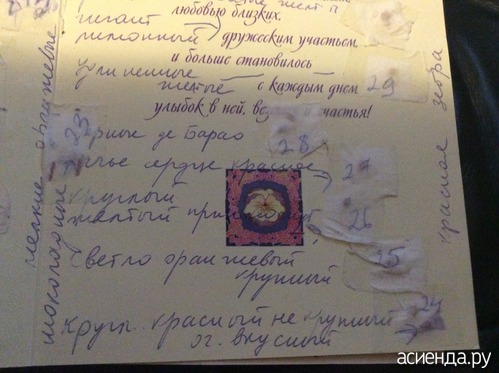 любовью близких,
гигант
лимонный дружеским участьем,
и больше становилось
удлиненные
желтые с каждым днем
29
улыбок в ней, счастья!
23
черные де Барао
28
бычье сердце красное
27
круглый
желтый
26
светло оранжевый
крупный
25
24
кругл. красный не крупный
оч. вкусный
мелкие оранжевые
шоколадные
красное зебра
асиенда.ру